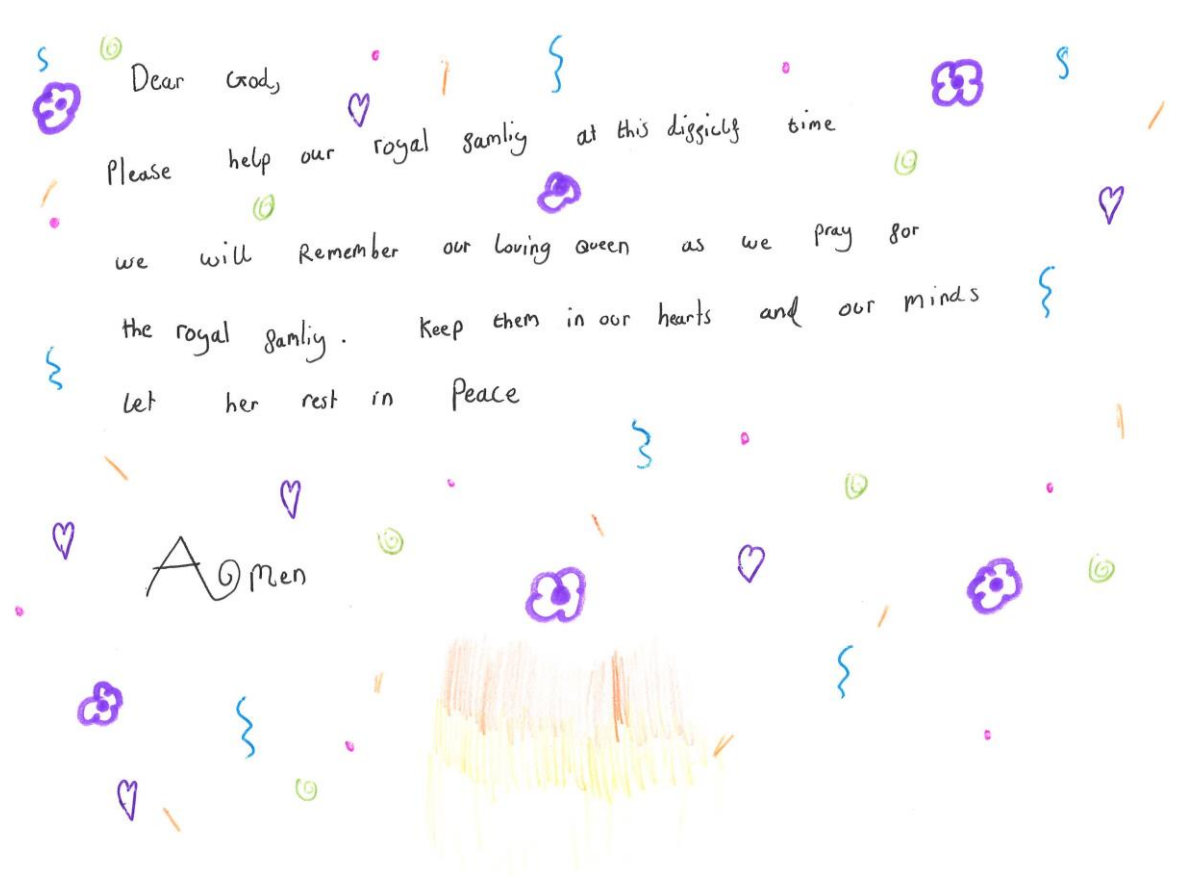 Dear God,
Please help our royal famliy at this difficlt time
we will Remember our loving Queen as we pray for
the royal famliy. Keep them in our hearts and our minds
Let her rest in Peace
Amen